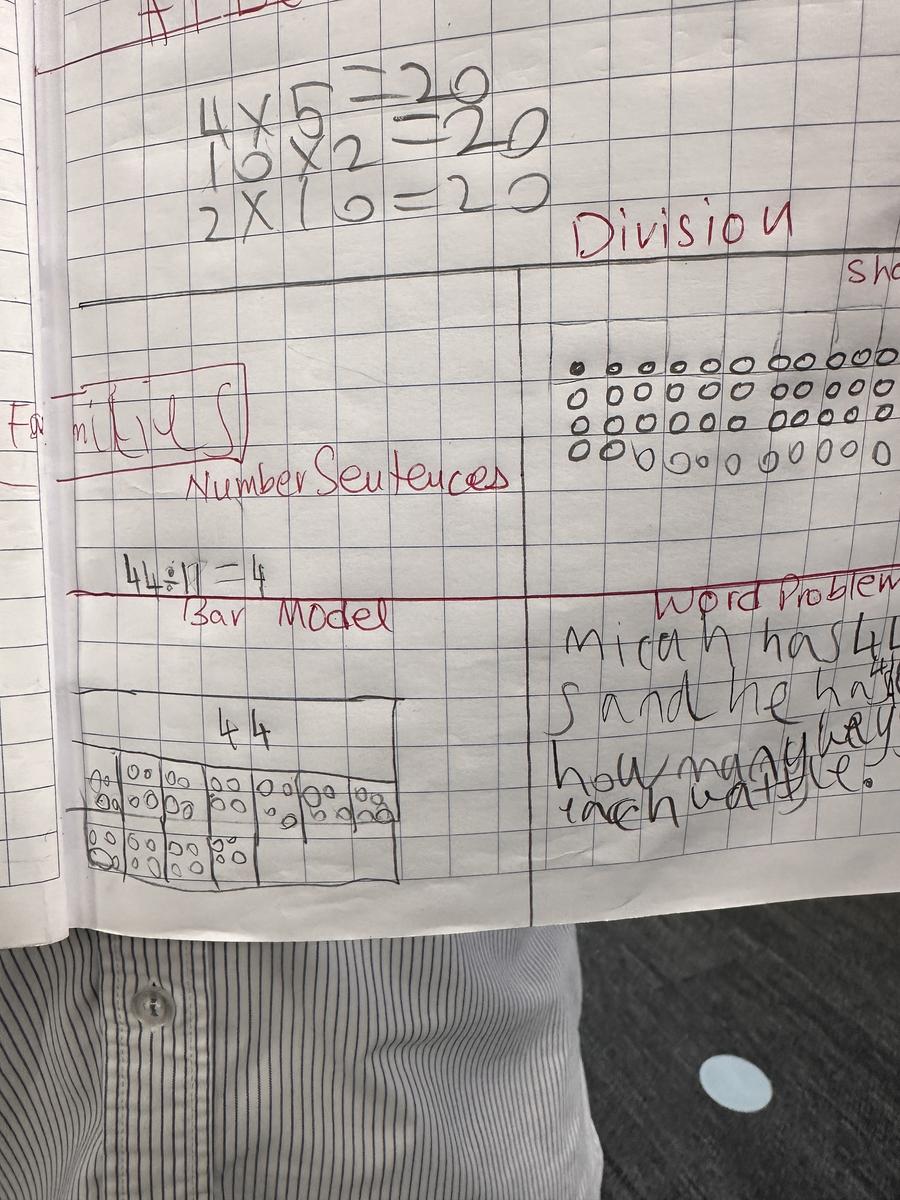 4 x 5 = 20
10 x 2 = 20
2 x 10 = 20
Division
Sho
Number Sentences
44 ÷ 11 = 4
Bar Model
44
Word Problem
Micah has 44
s and he ha
how many key